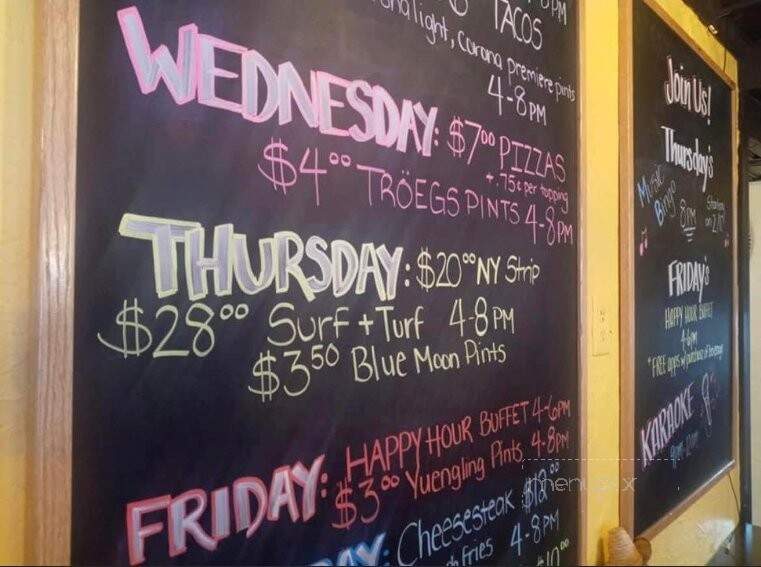 TACOS
Corona premiere pints
4-8PM
WEDNESDAY: $7⁰⁰ PIZZAS
+.75¢ per topping
$4⁰⁰ TRÖEGS PINTS 4-8PM
THURSDAY: $20⁰⁰ NY Strip
$28⁰⁰ Surf + Turf 4-8PM
$3⁵⁰ Blue Moon Pints
FRIDAY: HAPPY HOUR BUFFET 4-6PM
$3⁰⁰ Yuengling Pints 4-8PM
Cheesesteak $12⁰⁰
Fries 4-8PM
Join Us!
Thursday's
Music
Bingo
8PM
Starting
on
FRIDAY's
HAPPY HOUR BUFFET
4-6PM
*FREE apps w/ purchase of beverage
KARAOKE
9pm